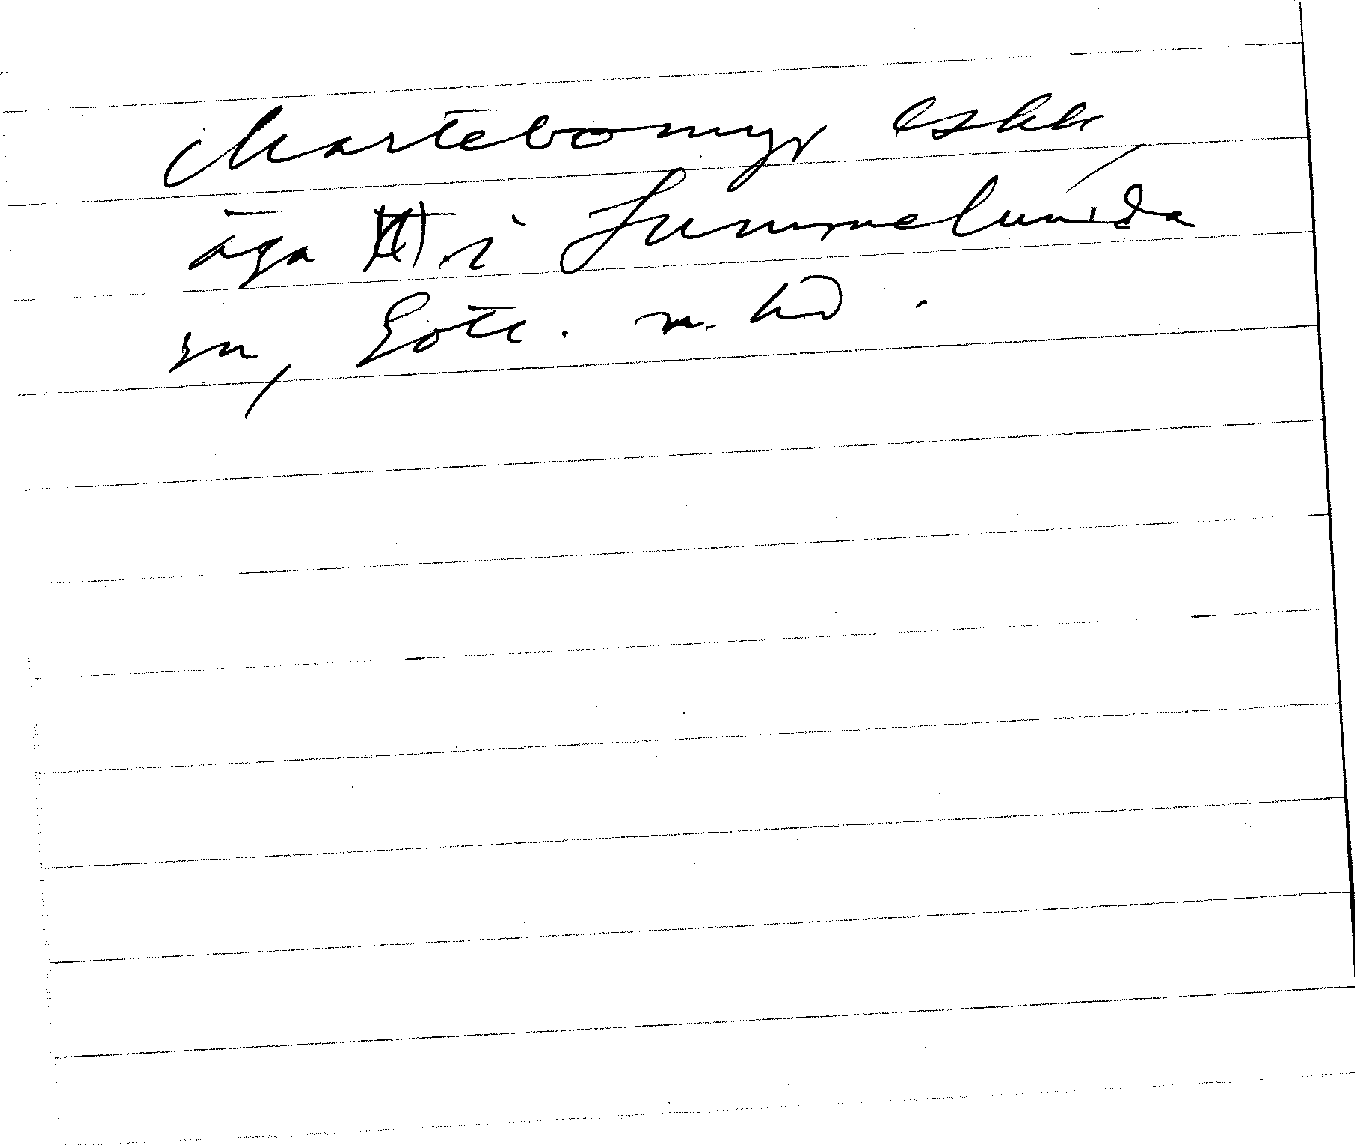 Martebomyr, eskk
äga i Lummelunda
sn, Gotl. n. hd.